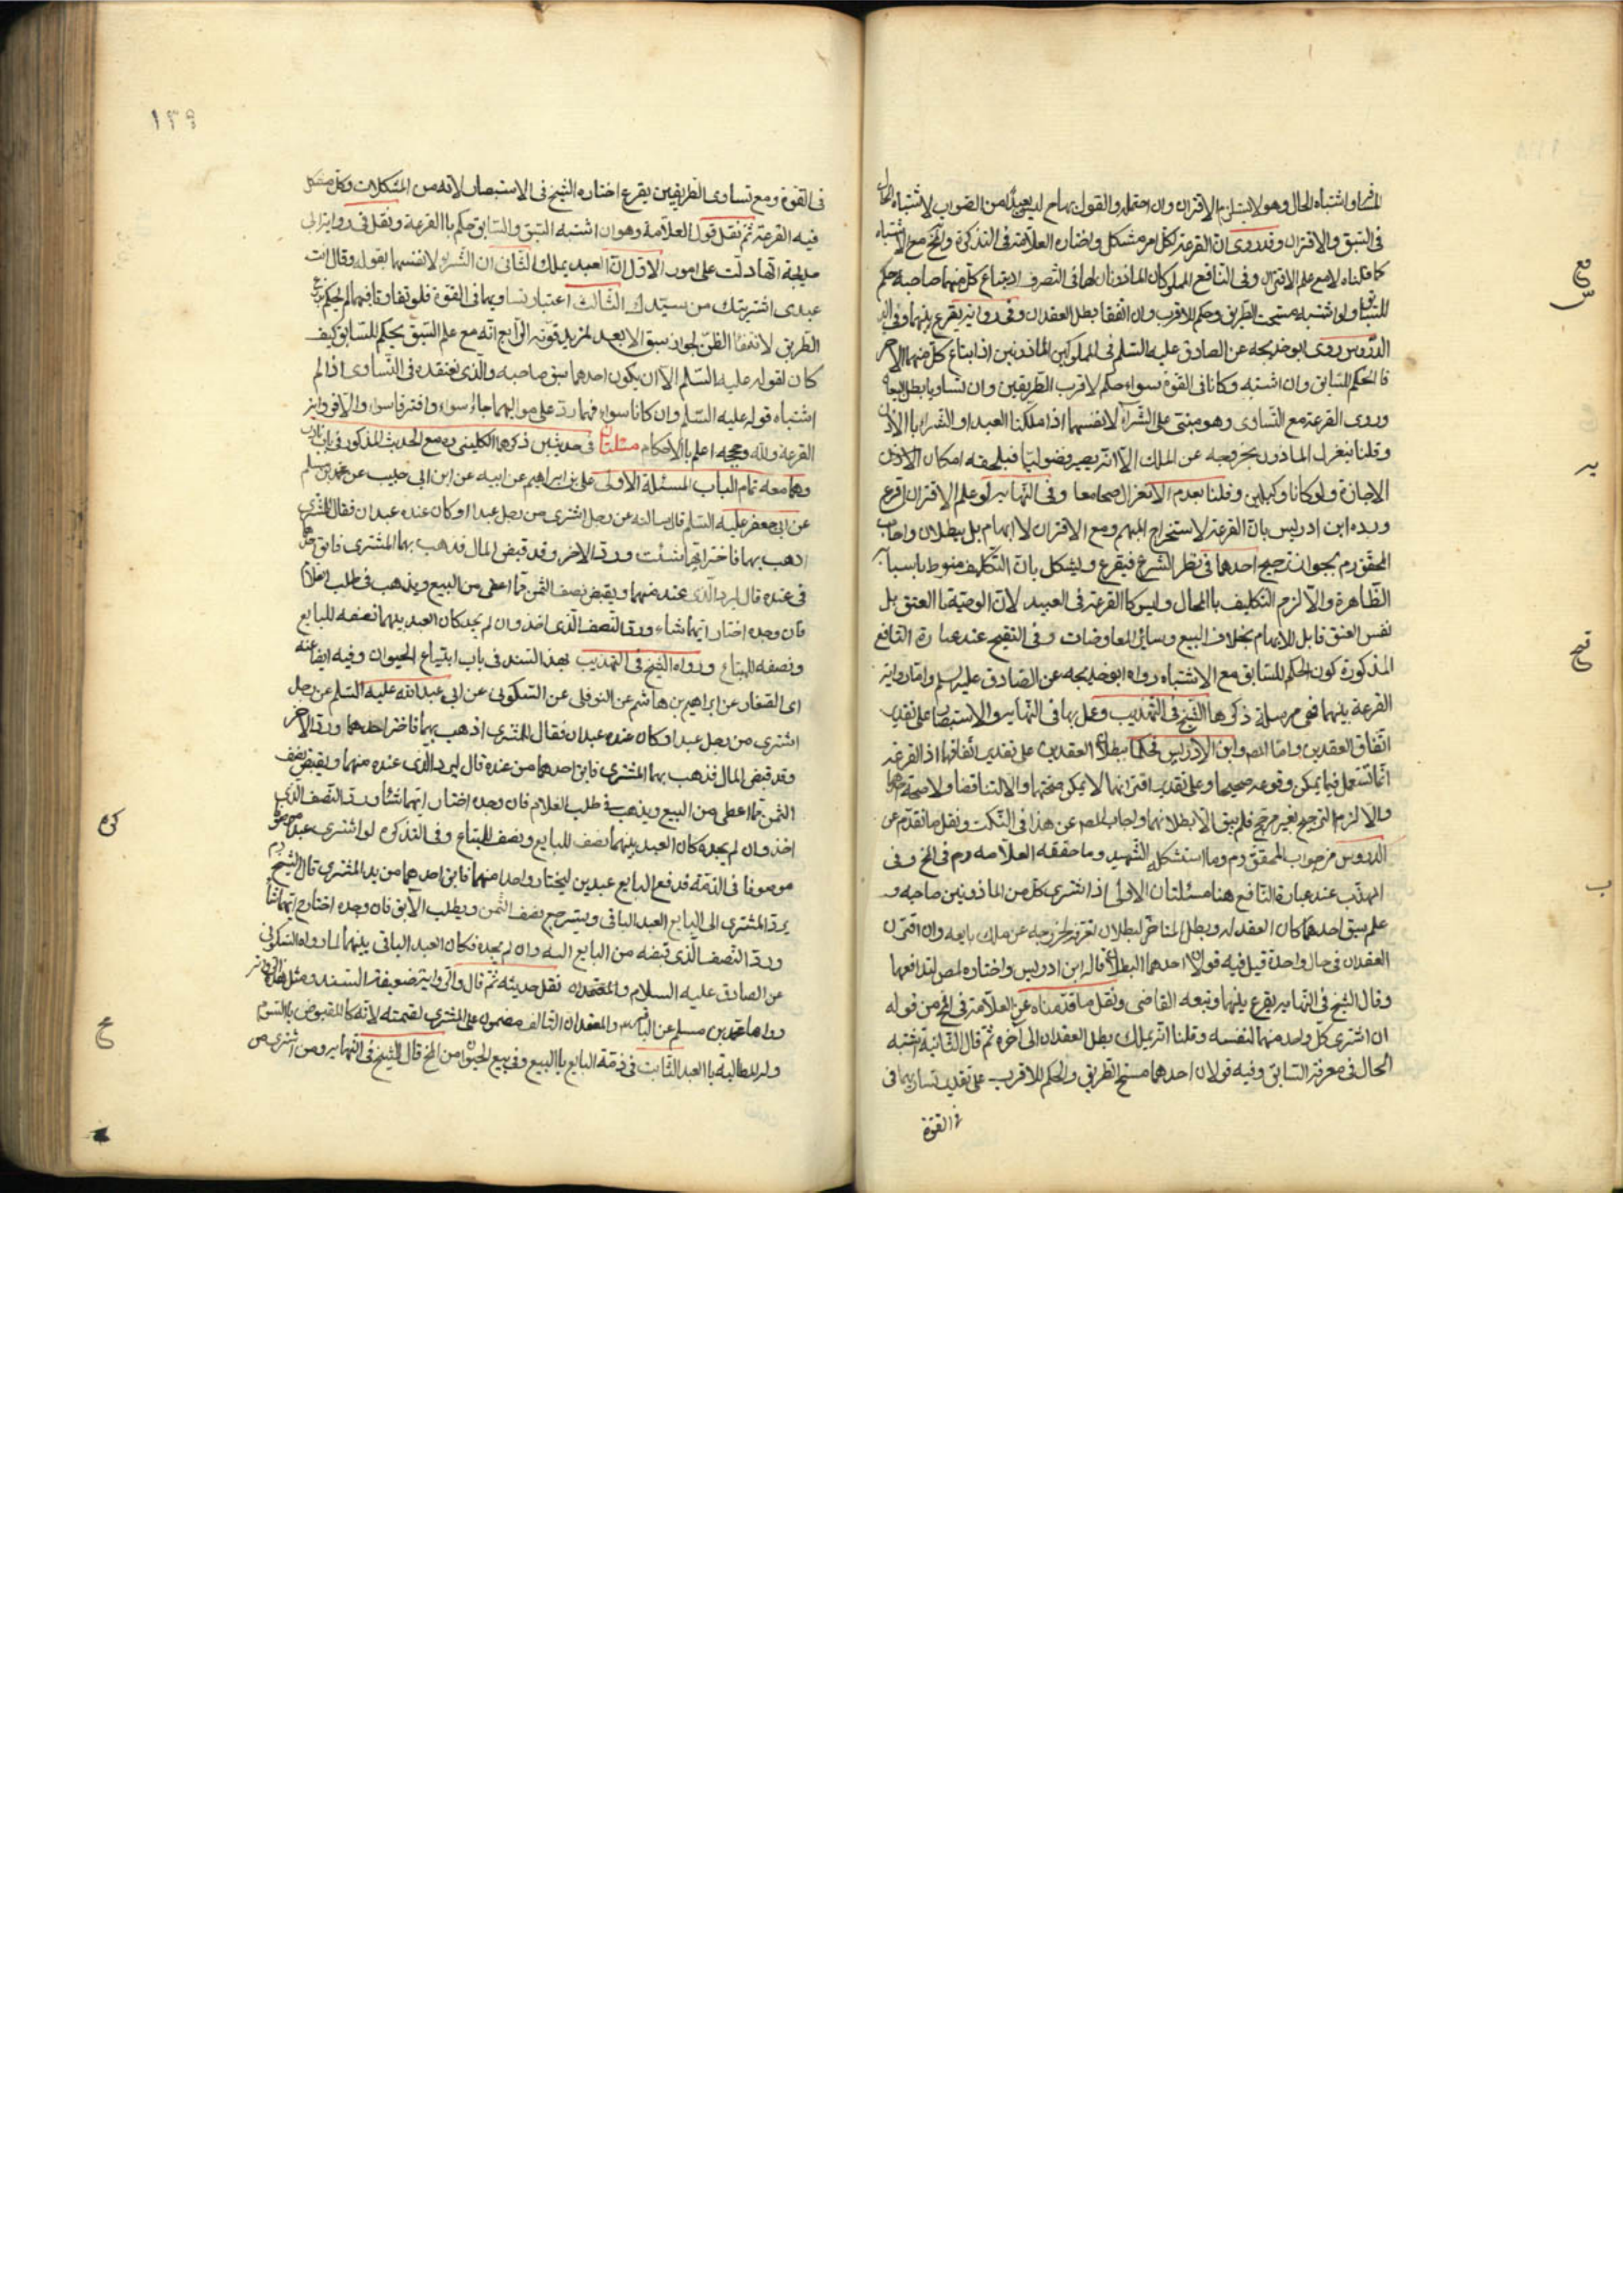 المثمر او اشتباه الحال وهو لا يستلزم الاقتران وان احتمله والقول بهما لم يعد من الصواب لاشتباه الحال
فى السبق والاقتران وقد روى ان القرعة لكل امر مشكل واختاره العلامة فى التذكرة والمخ مع الاشتباه
كما قلناه لا مع علم الاقتران وفى النافع المملوكان الماذونان لهما فى التصرف اذا ابتاع كل منهما صاحبه حكم
للسابق ولو اشتبه مسحت الطريق وحكم للاقرب وان اتفقا بطل العقدان وفى رواية يقرع بينهما وفى
الدروس روى ابو خديجه عن الصادق عليه السلم فى المملوكين الماذونين اذا ابتاع كل منهما الاخر
فالحكم للسابق وان اشتبه وكانا فى القوة سواء حكم لاقرب الطريقين وان تساويا بطل البيعان
وروى القرعة مع التساوى وهو مبنى على الشراء لانفسهما اذا ملكنا العبد او الشراء باالاذن
وقلنا ينعزل الماذون بخروجه عن الملك الا انه يصير فضوليا فيلحقه امكان الاذن
الاجازة ولو كانا وكيلين وقلنا بعدم الانعزال صحا معا وفى النهاية لو علم الاقتران اقرع
ورده ابن ادريس بان القرعة لاستخراج المبهم ومع الاقتران لا ابهام بل يبطلان واجاب
المحقق رم بجواز ترجيح احدهما فى نظر الشرع فيقرع ويشكل بان التكليف منوط باسبابه
الظاهرة والا لزم التكليف باالمحال وليس كاالقرعة فى العبيد لان الوصية باالعتق بل
نفس العتق قابل للابهام بخلاف البيع وسائر المعاوضات وفى التنقيح عند عبارة النافع
المذكورة كون الحكم للسابق مع الاشتباه رواه ابو خديجه عن الصادق عليه السلم واما رواية
القرعة بينهما فهى مرسلة ذكرها الشيخ فى التهذيب وعمل بها فى النهاية والاستبصار على تقدير
اتفاق العقدين واما المص وابن الادريس فحكما ببطلان العقدين على تقدير اتفاقهما اذ القرعة
انما تستعمل فيما يمكن وقوعه صحيحا وعلى تقدير اقترانهما لا يمكن صحتهما والا لتناقضا ولا صحة احدهما
والا لزم الترجيح بغير مرجح فلم يبق الا بطلانهما واجاب المص عن هذا فى النكت ونقل ما تقدم عن
الدروس من جواب المحقق رم وما استشكله الشهيد وما حققه العلامه رم فى المخ وفى
المهذب عند عبارة النافع هنا مسئلتان الاولى اذا اشترى كل من الماذونين صاحبه و
علم سبق احدهما كان العقد له وبطل المتاخر لبطلان تصرفه لخروجه عن ملك بايعه وان اقترن
العقدان فى حال واحدة قيل فيه قولان احدهما البطلان قاله ابن ادريس واختاره المص لتدافعهما
وقال الشيخ فى النهاية يقرع بينهما وتبعه القاضى ونقل ما قدمناه عن العلامة فى المخ من قوله
ان اشترى كل واحد منهما لنفسه وقلنا انه يملك بطل العقدان الى آخره ثم قال الثانية اشتبه
الحال فى معرفة السابق وفيه قولان احدهما مسح الطريق والحكم للاقرب على تقدير تساويهما فى
فى القوة
١٣٩
فى القوة ومع تساوى الطريقين يقرع اختاره الشيخ فى الاستبصار لانه من المشكلات وكل مشكل
فيه القرعة ثم نقل قول العلامة وهو ان اشتبه السبق والسابق حكم باالقرعة ونقل فى رواية ابى
خديجة انها دلت على امور الاول ان العبد يملك الثانى ان الشراء لانفسهما بقوله وقال انت
عبدى اشتريتك من سيدك الثالث اعتبار تساويهما فى القوة فلو تفاوتا فيهما لم يحكم
الطريق لانتفاء الظن لجواز سبق الابعد لمزيد قوته الرابع انه مع علم السبق يحكم للسابق كيف
كان لقوله عليه السلم الا ان يكون احدهما سبق صاحبه والذى نعتقده فى التساوى اذا لم
اشتباه قوله عليه السلم وان كانا سواء فهما رد على مواليهما جاءا سواء وافترقا سواء والا فرواية
القرعة والله وحججه اعلم باالاحكام مسئلتان فى حديثين ذكرهما الكلينى ره مع الحديث المذكور فى باب
وهما معه تمام الباب المسئلة الاولى على بن ابراهيم عن ابيه عن ابن ابى حبيب عن محمد بن مسلم
عن ابى جعفر عليه السلم قال سالته عن رجل اشترى من رجل عبدا وكان عنده عبدان فقال للمشترى
اذهب بهما فاختر ايهما شئت ورد الاخر وقد قبض المال فذهب بهما المشترى فابق احدهما
فى عنده قال ليرد الذى عنده منهما ويقبض نصف الثمن مما اعطى من البيع ويذهب فى طلب الغلام
فان وجده اختار ايهما شاء ورد النصف الذى اخذ وان لم يجد كان العبد بينهما نصفه للبايع
ونصفه للمبتاع ورواه الشيخ فى التهذيب بهذا السند فى باب ابتياع الحيوان وفيه ايضا عنه
اى الصفار عن ابراهيم بن هاشم عن النوفلى عن السكونى عن ابى عبد الله عليه السلم عن رجل
اشترى من رجل عبدا وكان عنده عبدان فقال للمشترى اذهب بهما فاختر احدهما ورد الاخر
وقد قبض المال فذهب بهما المشترى فابق احدهما من عنده قال ليرد الذى عنده منهما ويقبض نصف
الثمن مما اعطى من البيع ويذهب فى طلب الغلام فان وجده اختار ايهما شاء ورد النصف الذى
اخذ وان لم يجده كان العبد بينهما نصف للبايع ونصف للمبتاع وفى التذكره لو اشترى عبدا
موصوفا فى الذمة فدفع البايع عبدين ليختار واحدا منهما فابق احدهما من يد المشترى قال الشيخ رم
يرد المشترى الى البايع العبد الباقى ويسترجع نصف الثمن ويطلب الآبق فان وجده اختار ايهما شاء
ورد النصف الذى قبضه من البايع اليه وان لم يجده فكان العبد الباقى بينهما لما رواه السكونى
عن الصادق عليه السلام نقل حديثه ثم قال والرواية ضعيفة السند ومثل هذه الرواية
رواها محمد بن مسلم عن الباقر والمعتمد ان التالف مضمون على المشترى بقيمته لانه كاالمقبوض باالسوم
وله المطالبة باالعبد الثابت فى ذمة البايع باالبيع وفى بيع الحيوان من المخ قال الشيخ فى النهاية ومن اشترى من